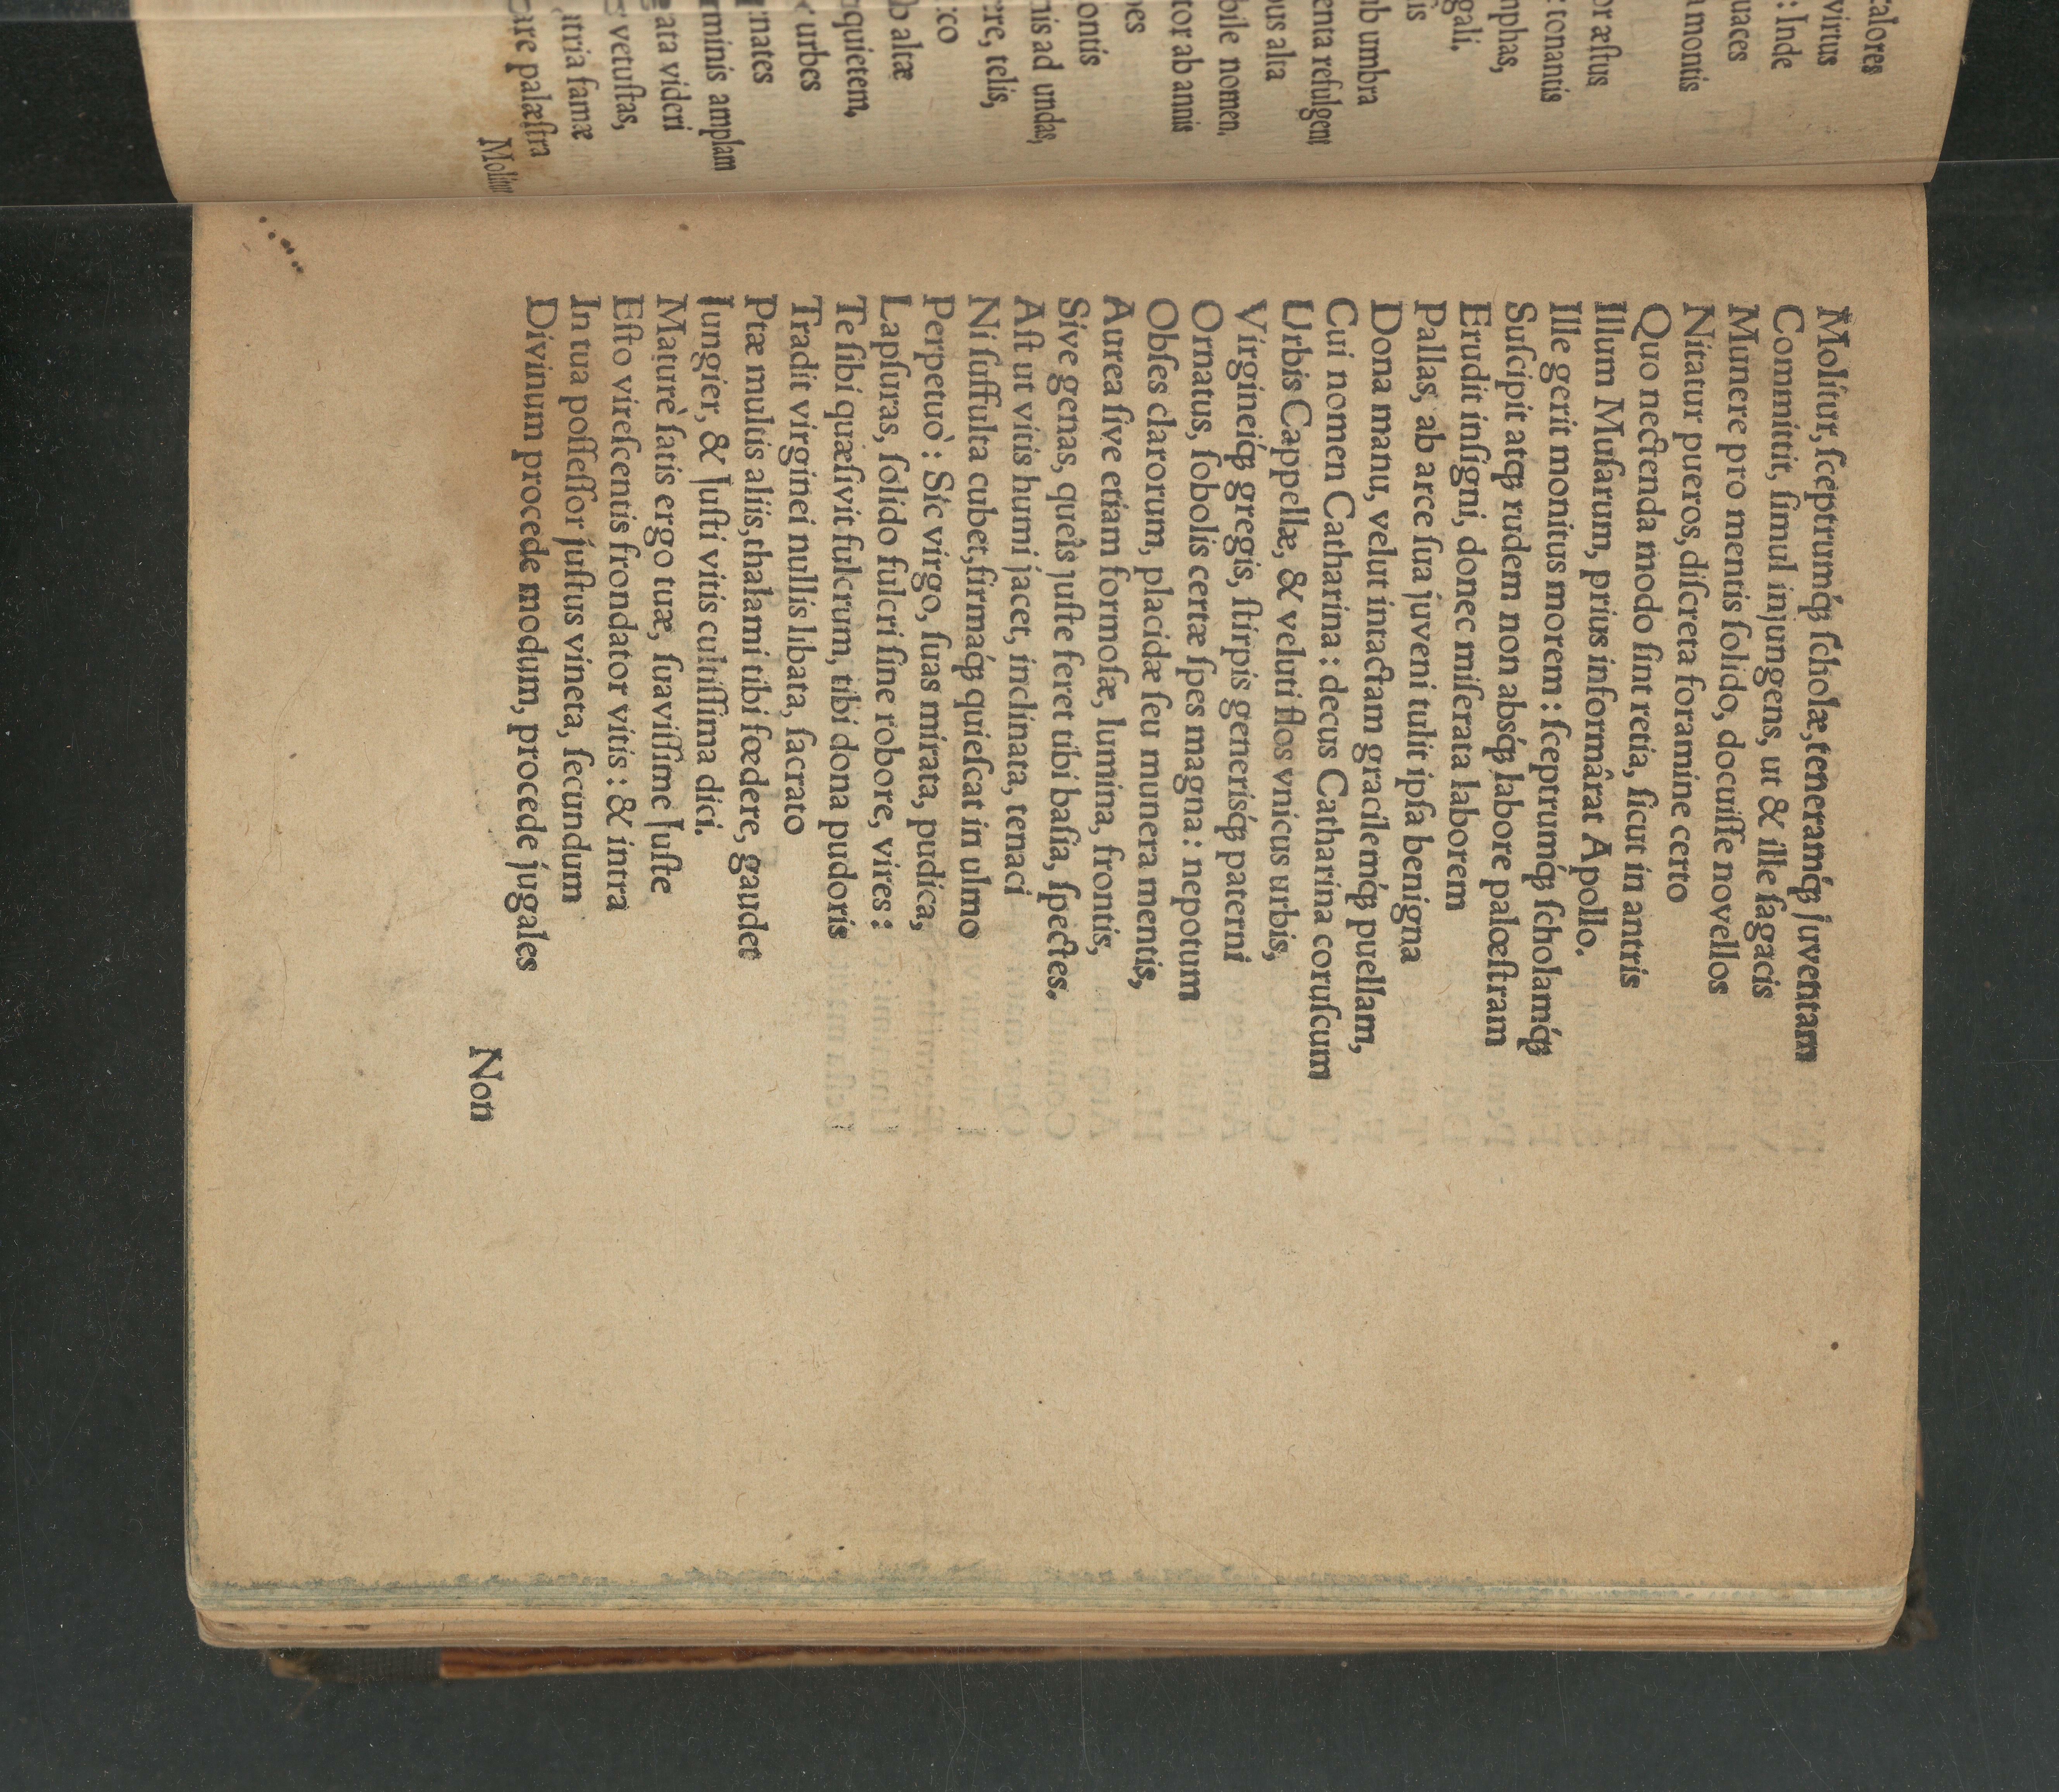 calores
virtus
: Inde
uaces
a montis
or æſtus
tonantis
mphas,
gali.
is
ub umbra
enta refulgent
ous alta
bile nomen.
tor ab annis
pes
ontis
nis ad undas,
ere, telis,
co
b altæ
quietem,
urbes
rnates
rminis amplam
ata videri
vetuſtas,
tria famæ
are palæſtra
Molitur
Molitur, ſceptrumq́ꝫ ſcholæ, teneramq́ꝫ juventam
Committit, ſimul injungens, ut & ille ſagacis
Munere pro mentis ſolido, docuiſſe novellos
Nitatur pueros, diſcreta foramine certo
Quo nectenda modo ſint retia, ſicut in antris
Illum Muſarum, prius informârat Apollo.
Ille gerit monitus morem : ſceptrumq́ꝫ ſcholamq́ꝫ
Suſcipit atqꝫ rudem non absq́ꝫ labore palœſtram
Erudit inſigni, donec miſerata laborem
Pallas, ab arce ſua juveni tulit ipſa benigna
Dona manu, velut intactam gracilemq́ꝫ puellam,
Cui nomen Catharina : decus Catharina coruſcum
Urbis Cappellæ, & veluti flos vnicus urbis,
Virgineiq́ꝫ gregis, ſtirpis generisq́ꝫ paterni
Ornatus, ſobolis certæ ſpes magna : nepotum
Obſes clarorum, placidæ ſeu munera mentis,
Aurea ſive etiam formoſæ, lumina, frontis,
Sive genas, queîs juſte feret tibi baſia, ſpectes.
Aſt ut vitis humi jacet, inclinata, tenaci
Ni ſuffulta cubet, firmaq́ꝫ quieſcat in ulmo
Perpetuò : Sic virgo, ſuas mirata, pudica,
Lapſuras, ſolido fulcri ſine robore, vires :
Te ſibi quæſivit fulcrum, tibi dona pudoris
Tradit virginei nullis libata, ſacrato
Præ multis aliis, thalami tibi fœdere, gaudet
Iungier, & Juſti vitis cultiſſima dici.
Maturè ſatis ergo tuæ, ſuaviſſime Juſte
Eſto vireſcentis frondator vitis : & intra
In tua poſſeſſor juſtus vineta, ſecundum
Divinum procede modum, procede jugales
Non